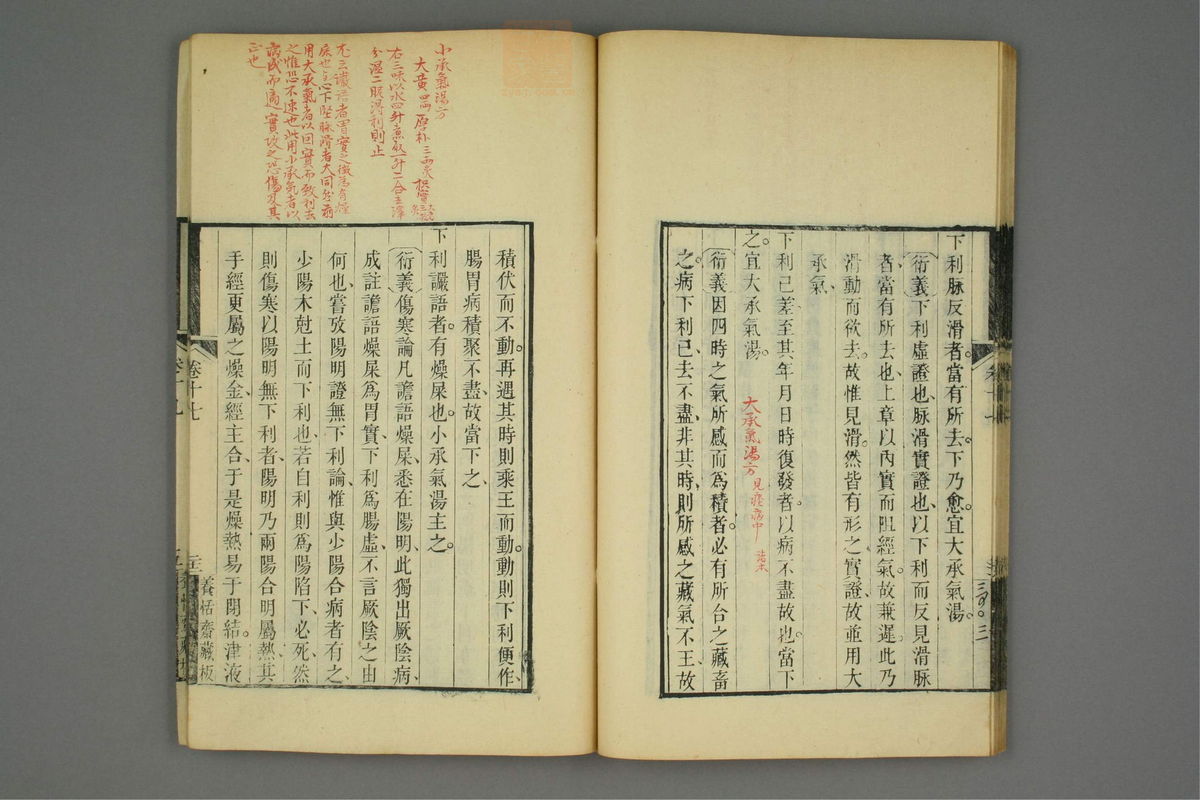 下利脉反滑者當有所去下乃愈宜大承氣湯
衍義下利虛證也脉滑實證也以下利而反見滑脉
者當有所去也上章以內實而阻經氣故兼遲此乃
滑動而欲去故惟見滑然皆有形之實證故並用大
承氣
下利已差至其年月日時復發者以病不盡故也當下
之宜大承氣湯
大承氣湯方 見痙病中
衍義因四時之氣所感而爲積者必有所合之藏畜
之病下利已去不盡非其時則所感之藏氣不王故
積伏而不動再遇其時則乘王而動動則下利便作
腸胃病積聚不盡故當下之
下利讝語者有燥屎也小承氣湯主之
衍義傷寒論凡譫語燥屎悉在陽明此獨出厥陰病
成註譫語燥屎爲胃實下利爲腸虛不言厥陰之由
何也嘗攷陽明證無下利論惟與少陽合病者有之
少陽木尅土而下利也若自利則爲陽陷下必死然
則傷寒以陽明無下利者陽明乃兩陽合明屬熱其
手經更屬之燥金經主合于是燥熱易于閉結津液
卷十七
養恬齋藏板
小承氣湯方
大黃四兩 厚朴三兩炙 枳實
右三味以水四升煮取一升二合去滓
分溫二服得利則止